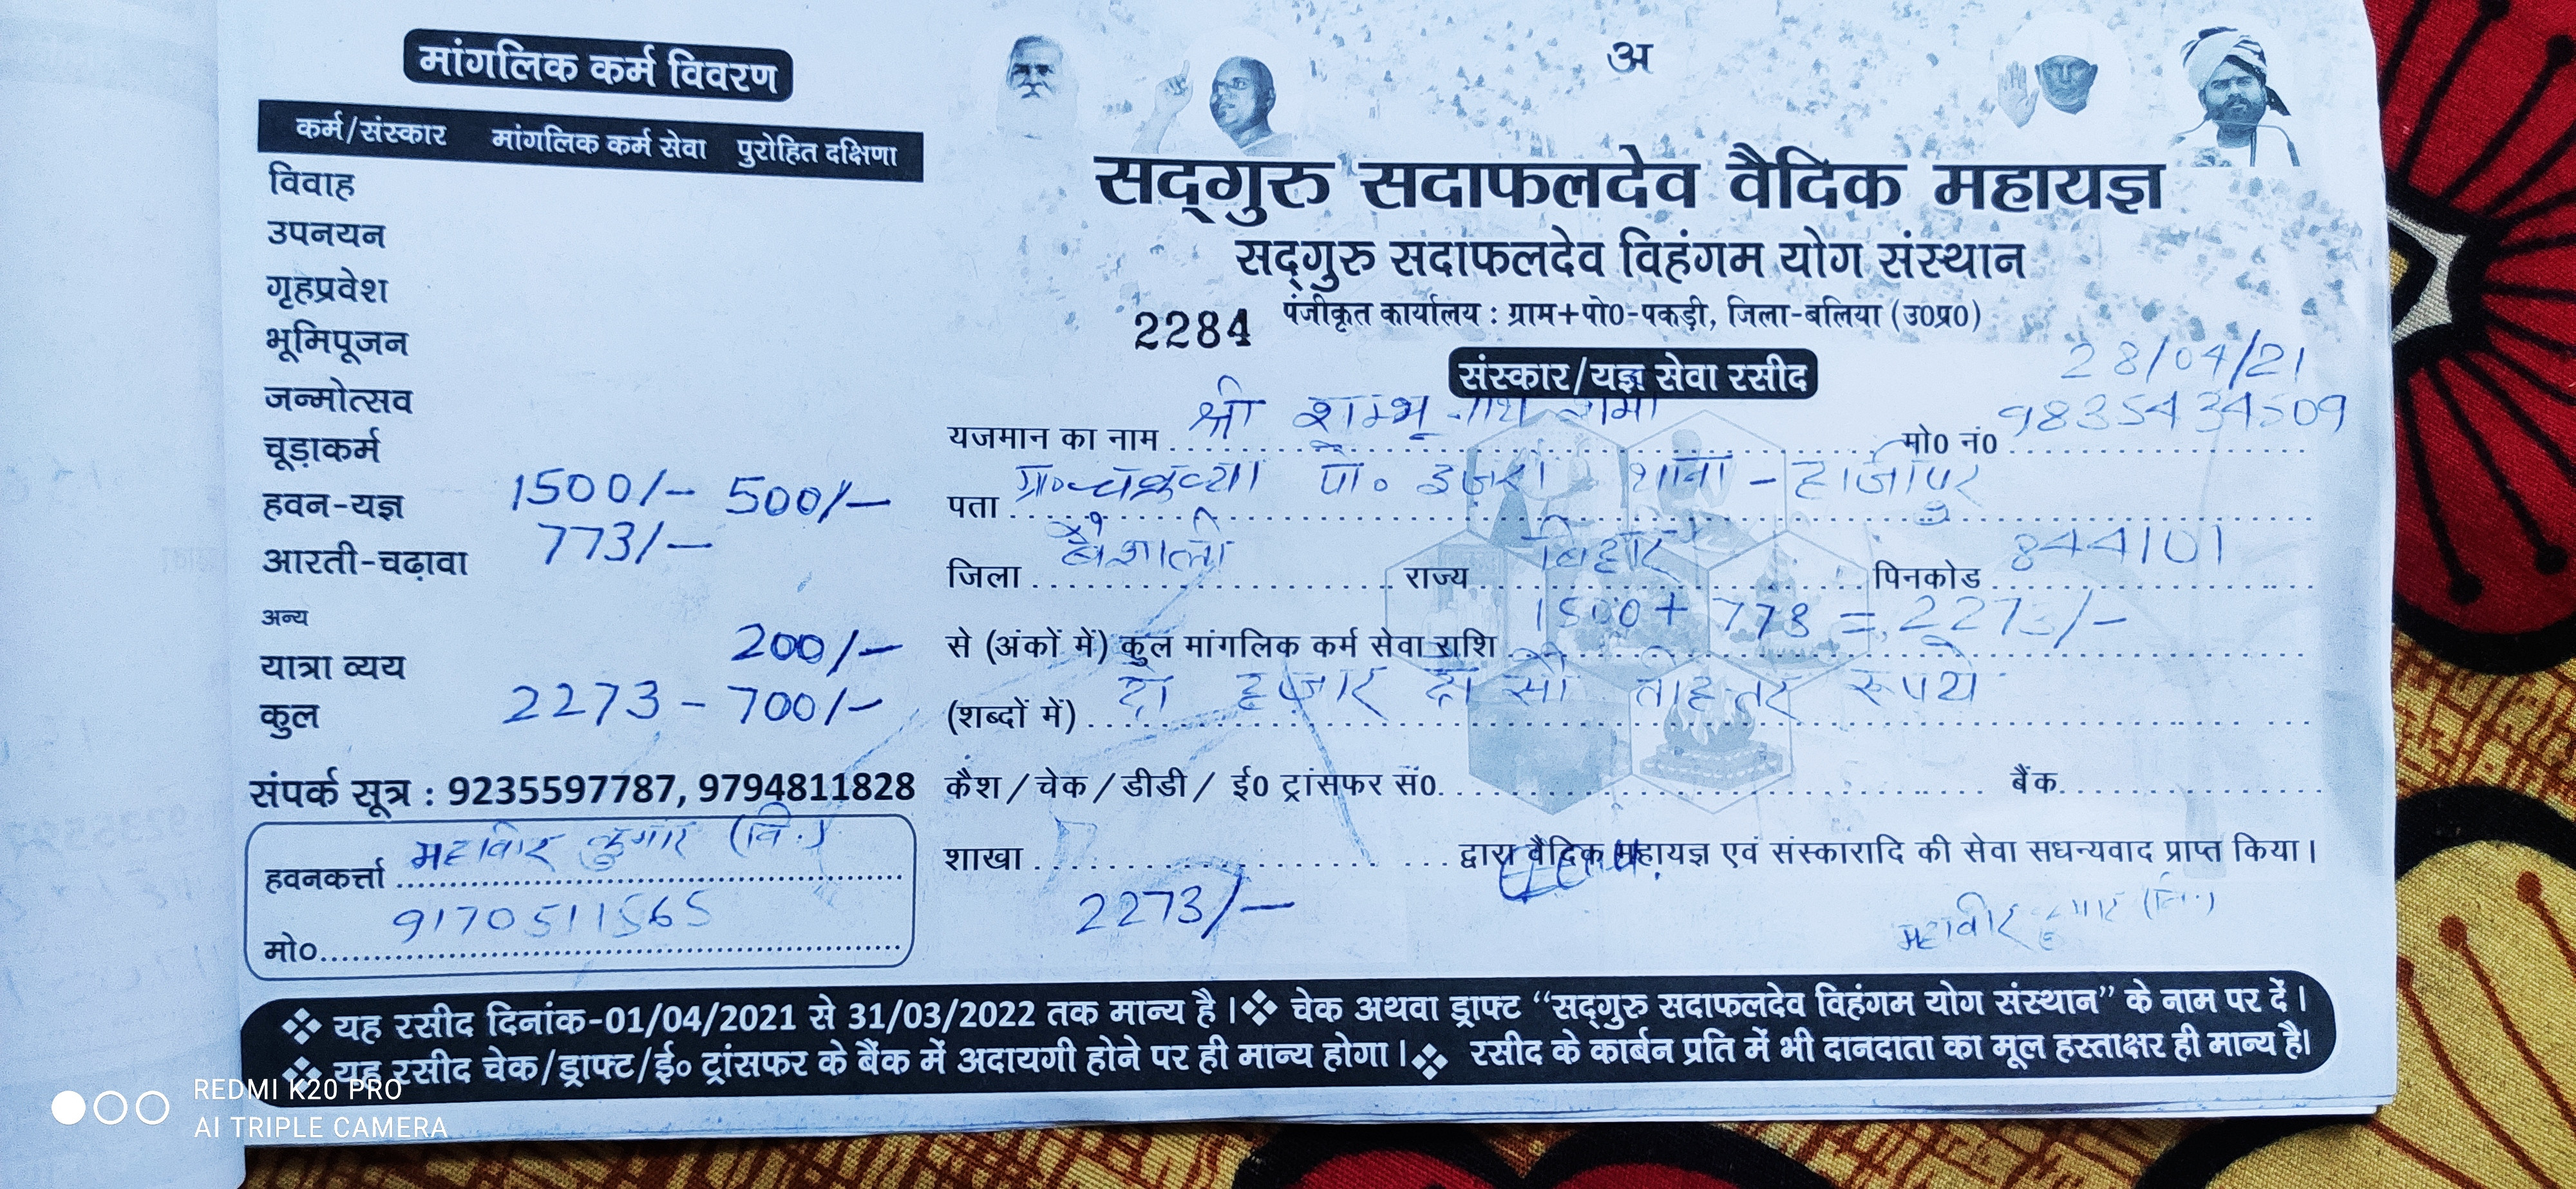 मांगलिक कर्म विवरण
कर्म/संस्कार मांगलिक कर्म सेवा पुरोहित दक्षिणा
विवाह
उपनयन
गृहप्रवेश
भूमिपूजन
जन्मोत्सव
चूड़ाकर्म
हवन-यज्ञ 1500/- 500/-
आरती-चढ़ावा 773/-
अन्य
यात्रा व्यय 200/-
कुल 2273 - 700/-
संपर्क सूत्र : 9235597787, 9794811828
हवनकर्त्ता महावीर कुमार (वि.)
मो० 9170511565
अ
सद्गुरु सदाफलदेव वैदिक महायज्ञ
सद्गुरु सदाफलदेव विहंगम योग संस्थान
पंजीकृत कार्यालय : ग्राम+पो0-पकड़ी, जिला-बलिया (उ0प्र0)
2284
संस्कार/यज्ञ सेवा रसीद
28/04/21
यजमान का नाम श्री शम्भू नाथ शर्मा मो0 नं0 9835434509
पता ग्रा० पो० थाना - हाजीपुर
जिला वैशाली राज्य बिहार पिनकोड 844101
से (अंकों में) कुल मांगलिक कर्म सेवा राशि 1500 + 773 = 2273/-
(शब्दों में) दो हजार दो सौ तीहत्तर रूपये
कैश / चेक / डीडी / ई0 ट्रांसफर सं0 बैंक
शाखा द्वारा वैदिक महायज्ञ एवं संस्कारादि की सेवा सधन्यवाद प्राप्त किया।
2273/-
महावीर कुमार (वि.)
❖ यह रसीद दिनांक-01/04/2021 से 31/03/2022 तक मान्य है। ❖ चेक अथवा ड्राफ्ट “सद्गुरु सदाफलदेव विहंगम योग संस्थान” के नाम पर दें।
❖ यह रसीद चेक/ड्राफ्ट/ई० ट्रांसफर के बैंक में अदायगी होने पर ही मान्य होगा। ❖ रसीद के कार्बन प्रति में भी दानदाता का मूल हस्ताक्षर ही मान्य है।
REDMI K20 PRO
AI TRIPLE CAMERA